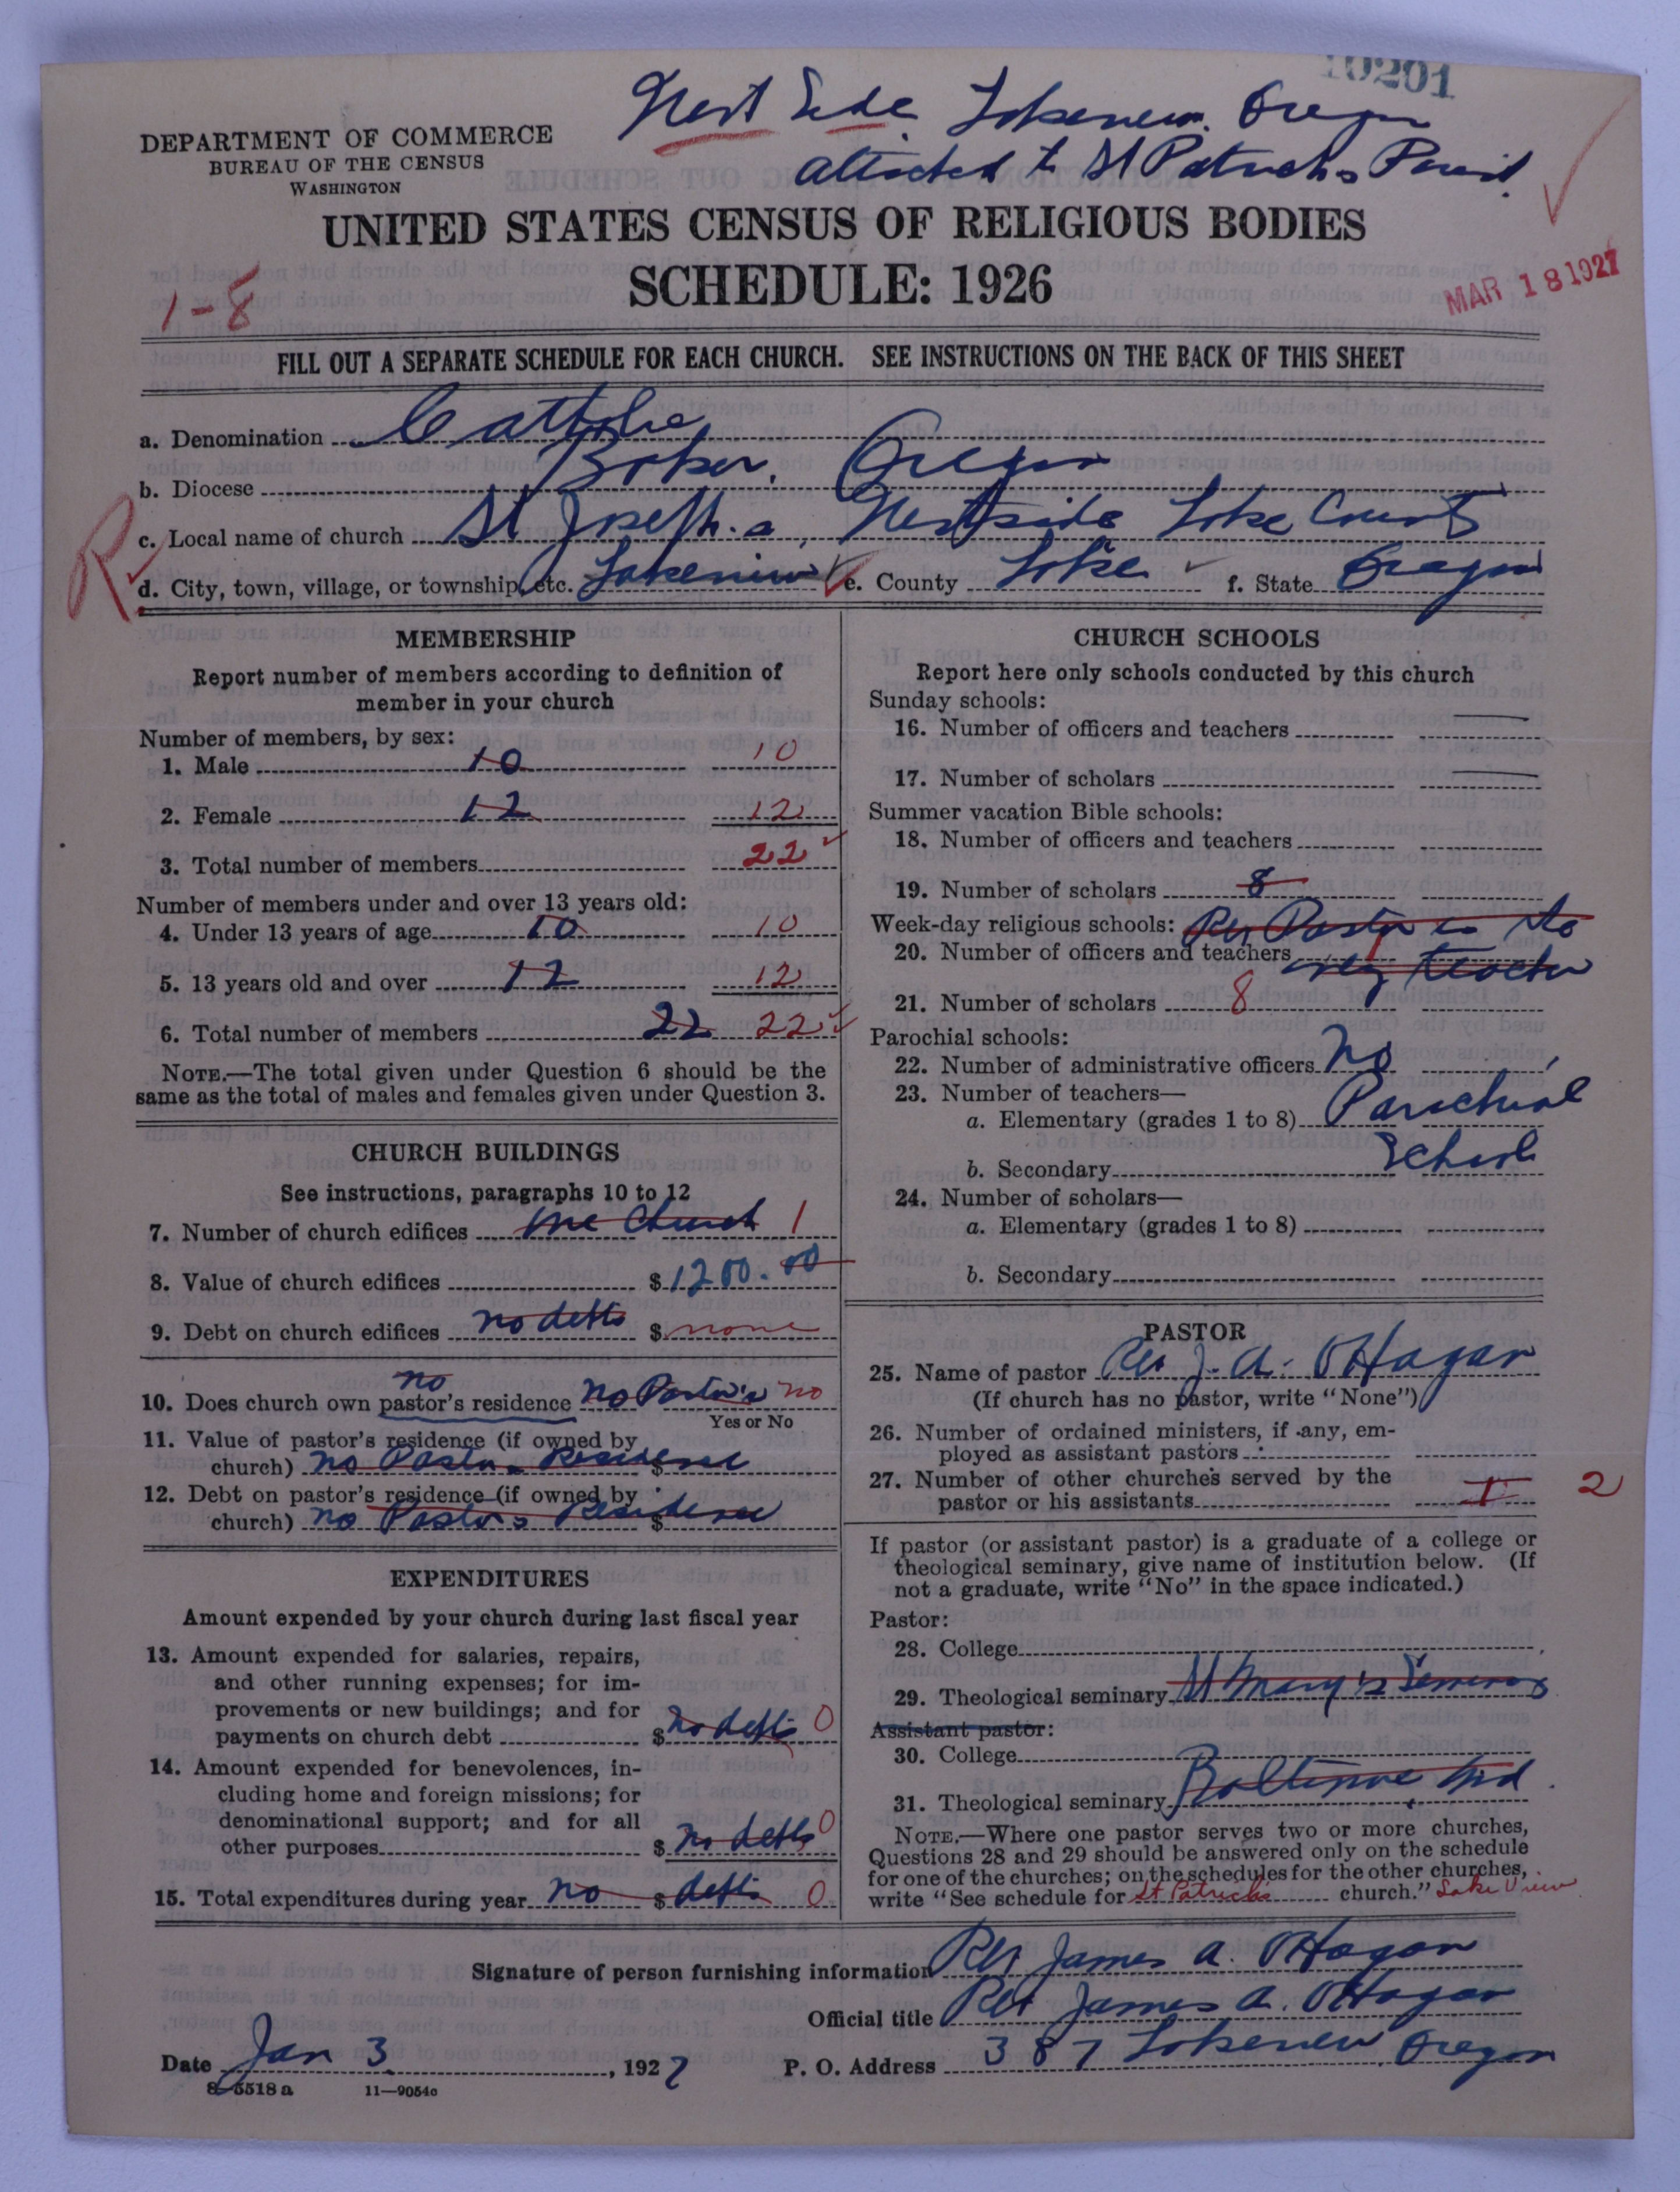 10201
West Side. Lakeview. Oregon
attached to St Patrick's Parish.
DEPARTMENT OF COMMERCE
BUREAU OF THE CENSUS
WASHINGTON
UNITED STATES CENSUS OF RELIGIOUS BODIES
SCHEDULE: 1926
1-8
MAR 18 1927
FILL OUT A SEPARATE SCHEDULE FOR EACH CHURCH. SEE INSTRUCTIONS ON THE BACK OF THIS SHEET
a. Denomination Catholic
b. Diocese Baker, Oregon
R
c. Local name of church St Joseph's, Westside Lake County
d. City, town, village, or township, etc. Lakeview e. County Lake f. State Oregon
MEMBERSHIP
Report number of members according to definition of
member in your church
Number of members, by sex:
1. Male 10 10
2. Female 12 12
3. Total number of members 22
Number of members under and over 13 years old:
4. Under 13 years of age 10 10
5. 13 years old and over 12 12
6. Total number of members 22 22
NOTE.—The total given under Question 6 should be the
same as the total of males and females given under Question 3.
CHURCH BUILDINGS
See instructions, paragraphs 10 to 12
7. Number of church edifices one Church 1
8. Value of church edifices $1200.00
9. Debt on church edifices no debts $ none
no
10. Does church own pastor's residence no Pastor's no
Yes or No
11. Value of pastor's residence (if owned by
church) no Pastors Residence $
12. Debt on pastor's residence (if owned by
church) no Pastors Residence $
EXPENDITURES
Amount expended by your church during last fiscal year
13. Amount expended for salaries, repairs,
and other running expenses; for im-
provements or new buildings; and for
payments on church debt $ no debts 0
14. Amount expended for benevolences, in-
cluding home and foreign missions; for
denominational support; and for all
other purposes $ no debts 0
15. Total expenditures during year no $ debts 0
CHURCH SCHOOLS
Report here only schools conducted by this church
Sunday schools:
16. Number of officers and teachers
17. Number of scholars
Summer vacation Bible schools:
18. Number of officers and teachers
19. Number of scholars 8
Week-day religious schools: Rev Pastor is the
20. Number of officers and teachers 1 teacher
21. Number of scholars 8
Parochial schools:
22. Number of administrative officers no
23. Number of teachers—
a. Elementary (grades 1 to 8) Parochial
b. Secondary School
24. Number of scholars—
a. Elementary (grades 1 to 8)
b. Secondary
PASTOR
25. Name of pastor Rev J. A. O'Hagan
(If church has no pastor, write "None")
26. Number of ordained ministers, if any, em-
ployed as assistant pastors
27. Number of other churches served by the
pastor or his assistants 1 2
If pastor (or assistant pastor) is a graduate of a college or
theological seminary, give name of institution below. (If
not a graduate, write "No" in the space indicated.)
Pastor:
28. College
29. Theological seminary St Mary's Seminary
Assistant pastor:
30. College
31. Theological seminary Baltimore Md.
NOTE.—Where one pastor serves two or more churches,
Questions 28 and 29 should be answered only on the schedule
for one of the churches; on the schedules for the other churches,
write "See schedule for St Patrick's church." Lake View
Signature of person furnishing information Rev James A. O'Hagan
Official title Rev James A. O'Hagan
Date Jan 3, 1927 P. O. Address 387 Lakeview, Oregon
8-5518 a 11—9054c